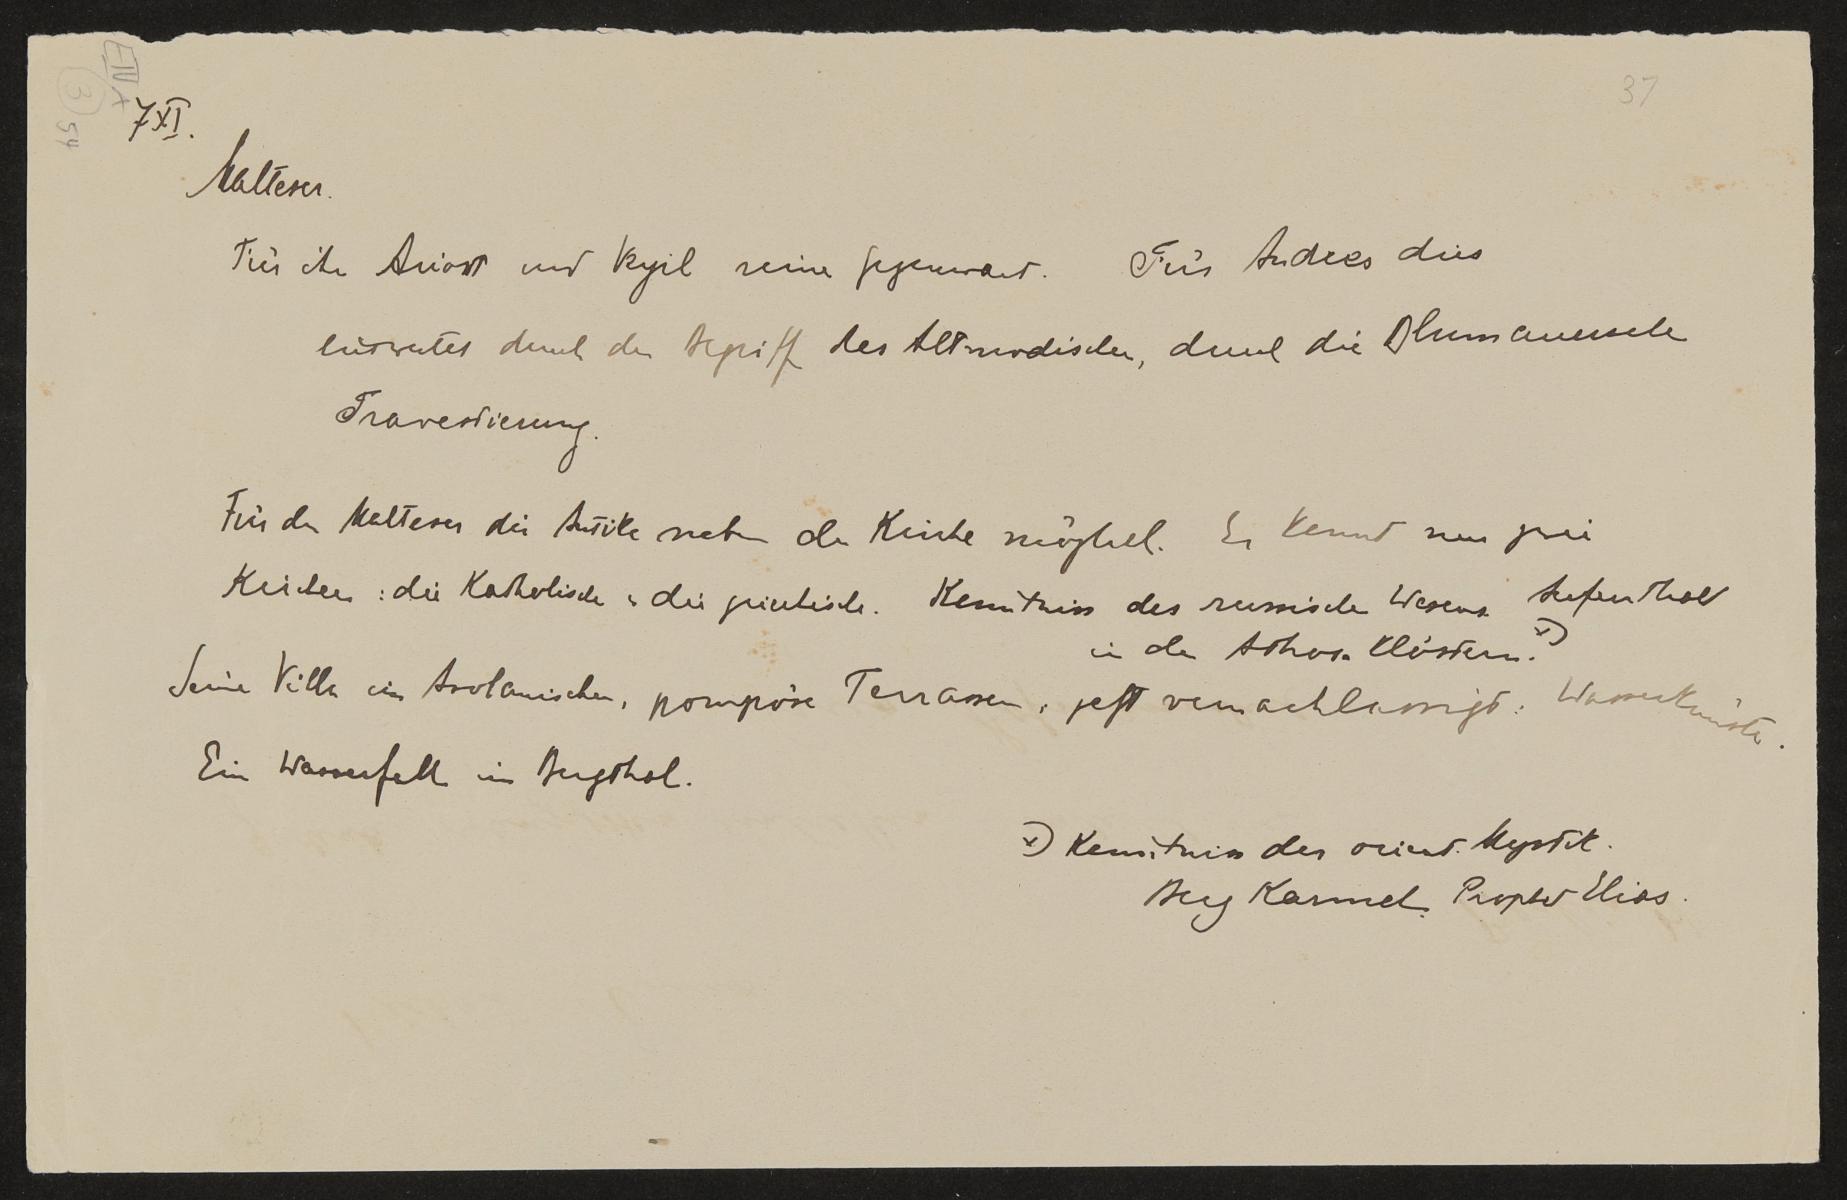 E IV A
3
54
37
7 XI.
Malteser.
Für ihn Ariost und Vergil reine Gegenwart. Für Andres dies
entwertet durch den Begriff des Altmodischen, durch die Blumauersche
Travestierung.
Für den Malteser die Antike neben der Kirche möglich. Er kennt nur zwei
Kirchen: die Katholische u die griechische. Kenntniss des russischen Wesens. Aufenthalt
in den Athos-Klöstern. x)
Seine Villa im Asolanischen, pompöse Terrassen, jetzt vernachlässigt: Wasserkünste.
Ein Wasserfall im Bergthal.
x) Kenntniss der orient. Mystik.
Berg Karmel. Prophet Elias.